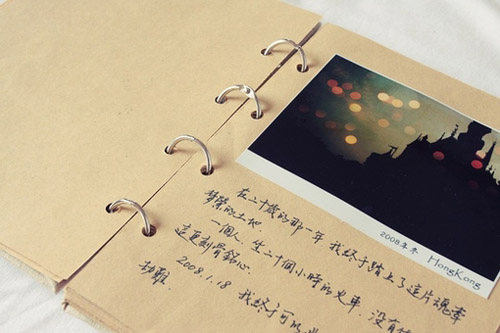 2008年冬 HongKong
在二十歲的那一年 我终于踏上了這片魂牽
梦萦的土地.
一個人. 坐二十個小時的火車. 没有
這更刻骨銘心.
2008.1.18 我终于可以
劫難.